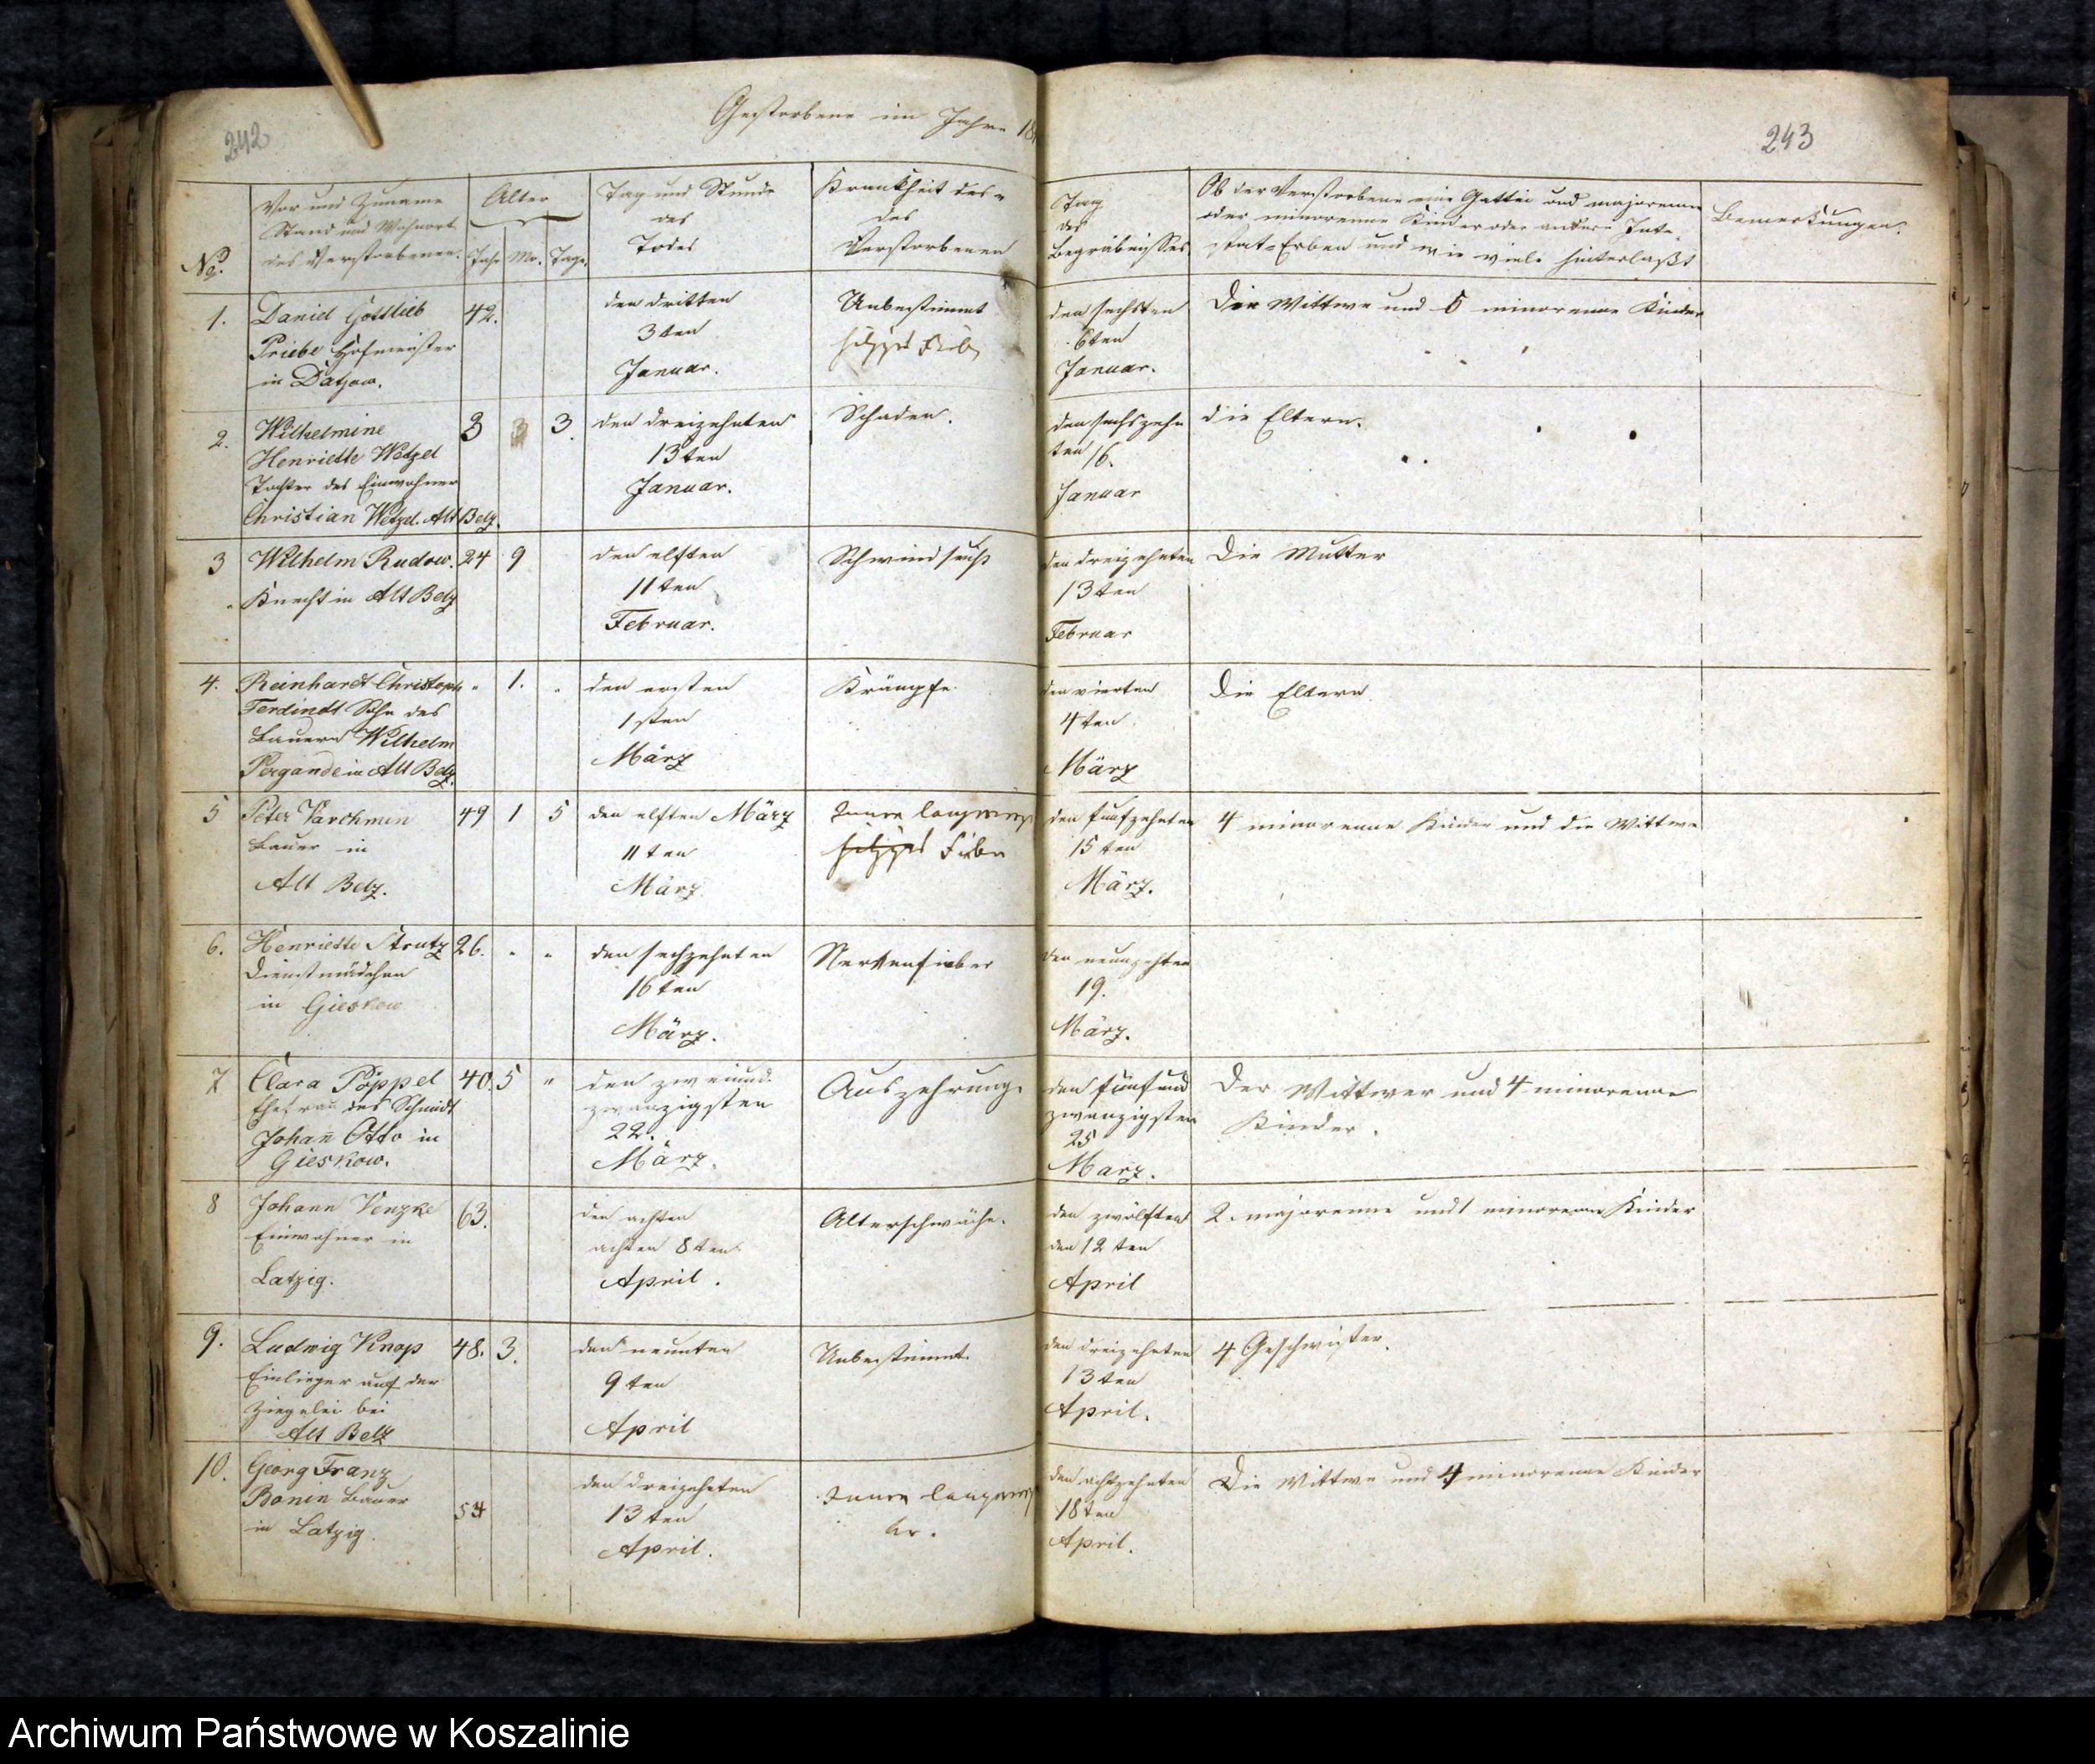 242
Gestorbene im Jahre 18
No.
Vor und Zuname
Stand und Wohnort
des Verstorbenen.
Alter
Jahr Mo. Tage.
Tag und Stunde
des
Todes
Krankheit des
des
Verstorbenen
1.
Daniel Gottlieb
Priebe Hofmeister
in Datjow.
42.
den dritten
3ten
Januar.
Unbestimmt
hitziges Fieber
2.
Wilhelmine
Henriette Wetzel
Tochter des Einwohner
Christian Wetzel. Alt Belz.
3 3 3.
den dreizehnten
13ten
Januar.
Schaden.
3
Wilhelm Rudow.
Knecht in Alt Belz
24 9
den elften
11ten
Februar.
Schwindsucht
4.
Reinhardt Christoph
Ferdindt Sohn des
Bauern Wilhelm
Pergande in Alt Belz.
" 1. "
den ersten
1sten
März
Krämpfe
5
Peter Varchmin
Bauer in
Alt Belz.
49 1 5
den elften März
11ten
März
hitziges Fieber
6.
Henriette Strutz
Dienstmädchen
in Gieskow
26. " "
den sechzehnten
16ten
März.
Nervenfieber
7
Clara Pöppel
Ehefrau des Schmidt
Johan̄ Otto in
Gieskow.
40. 5 "
den zweiund
zwanzigsten
22.
März.
Auszehrung.
8
Johann Venzke
Einwohner in
Latzig.
63.
den achten
achten 8ten
April.
Alterschwäche.
9.
Ludwig Knop
Einlieger auf der
Ziegelei bei
Alt Belz
48. 3.
den neunten
9ten
April
Unbestimmt.
10.
Georg Franz
Bonin Bauer
in Latzig.
54
den dreizehnten
13ten
April.
243
Tag
des
Begräbnisses
Ob der Verstorbene eine Gattin und majorenne
oder minorenne Kinder oder andere Inte-
stat-Erben und wie viele hinterlaßt
Bemerkungen.
den sechsten
6ten
Januar.
Die Wittwe und 6 minorenne Kinder
den sechszehn
ten 16.
Januar
die Eltern.
den dreizehnten
13ten
Februar
Die Mutter
den vierten
4ten
März
Die Eltern
den funfzehnten
15ten
März.
4 minorenne Kinder und die Wittwe
den neunzehten
19.
März.
den fünfund
zwanzigsten
25
März.
Der Wittwer und 4 minorenne
Kinder.
den zwölften
den 12ten
April
2 majorenne und 1 minorenne Kinder
den dreizehnten
13ten
April.
4 Geschwister.
den achtzehnten
18ten
April.
Die Wittwe und 4 minorenne Kinder
Archiwum Państwowe w Koszalinie